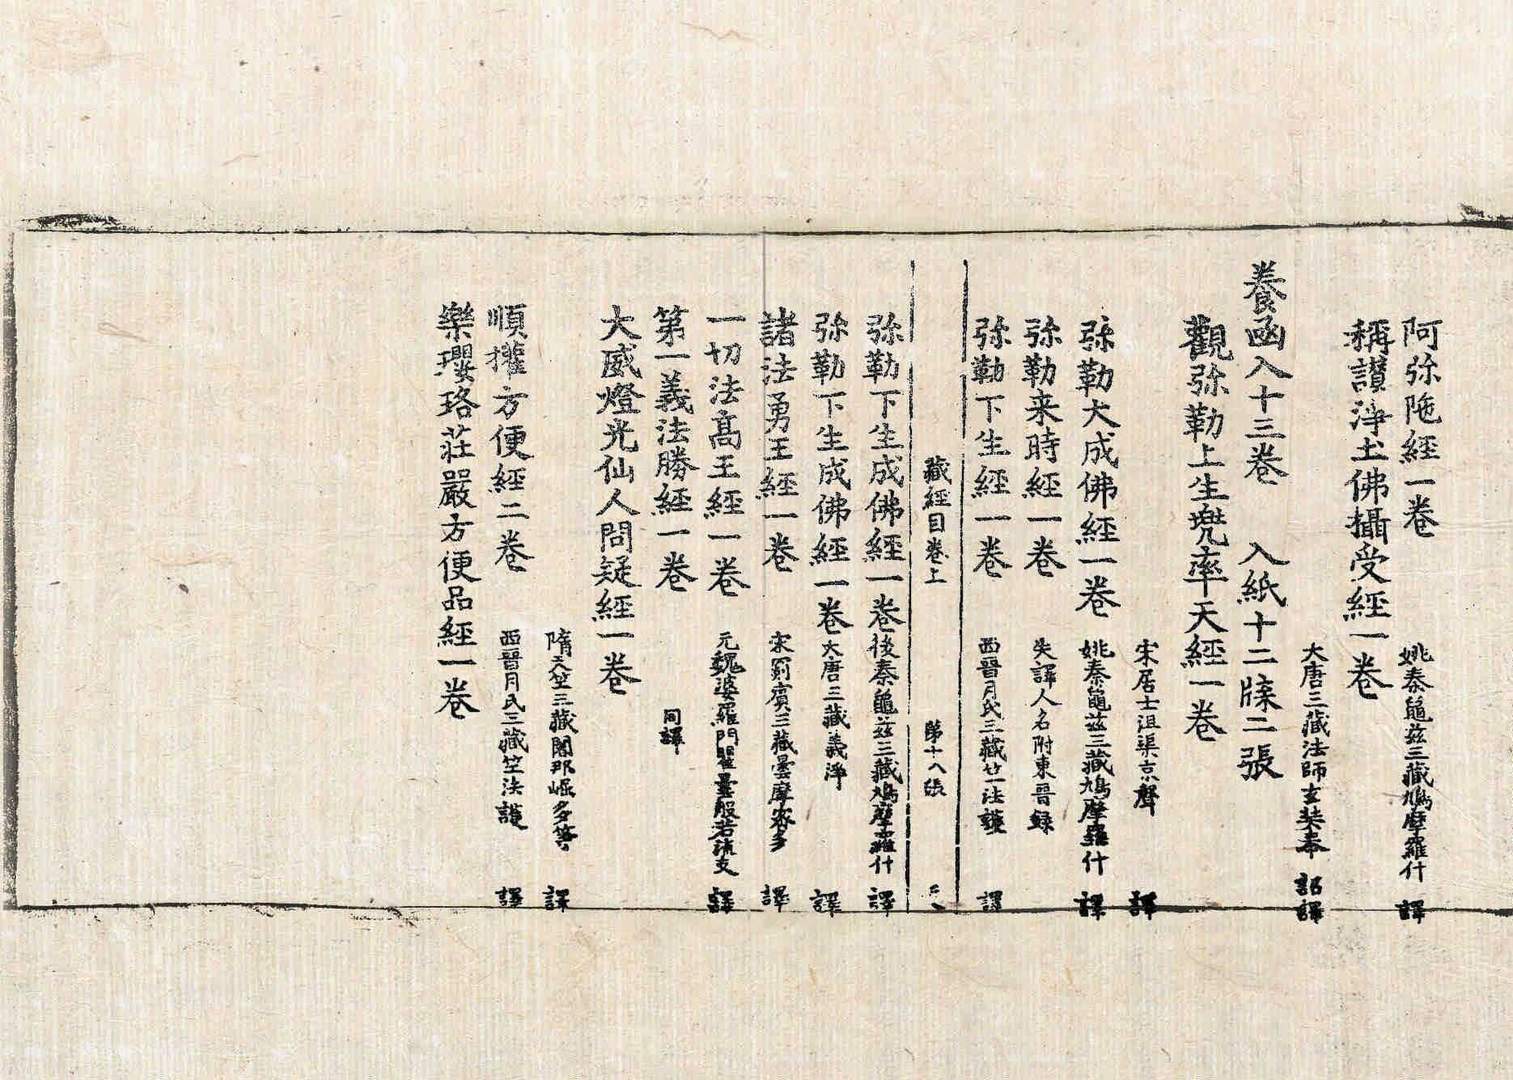 阿弥陁經一卷 姚秦龜兹三藏鳩摩羅什 譯
稱讃淨土佛攝受經一卷
大唐三藏法師玄奘奉 詔譯
養函入十三卷 入紙十二牒二張
觀弥勒上生兜率天經一卷
宋居士沮渠京聲 譯
弥勒大成佛經一卷 姚秦龜兹三藏鳩摩羅什 譯
弥勒来時經一卷 失譯人名附東晉録
弥勒下生經一卷 西晉月氏三藏竺法護 譯
藏經目卷上 第十八張
弥勒下生成佛經一卷 後秦龜兹三藏鳩摩羅什 譯
弥勒下生成佛經一卷 大唐三藏義淨 譯
諸法勇王經一卷 宋罽賓三藏曇摩蜜多 譯
一切法高王經一卷 元魏婆羅門瞿曇般若流支 譯
第一義法勝經一卷 同譯
大威燈光仙人問疑經一卷
隋天竺三藏闍那崛多等 譯
順權方便經二卷 西晉月氏三藏竺法護 譯
樂瓔珞莊嚴方便品經一卷